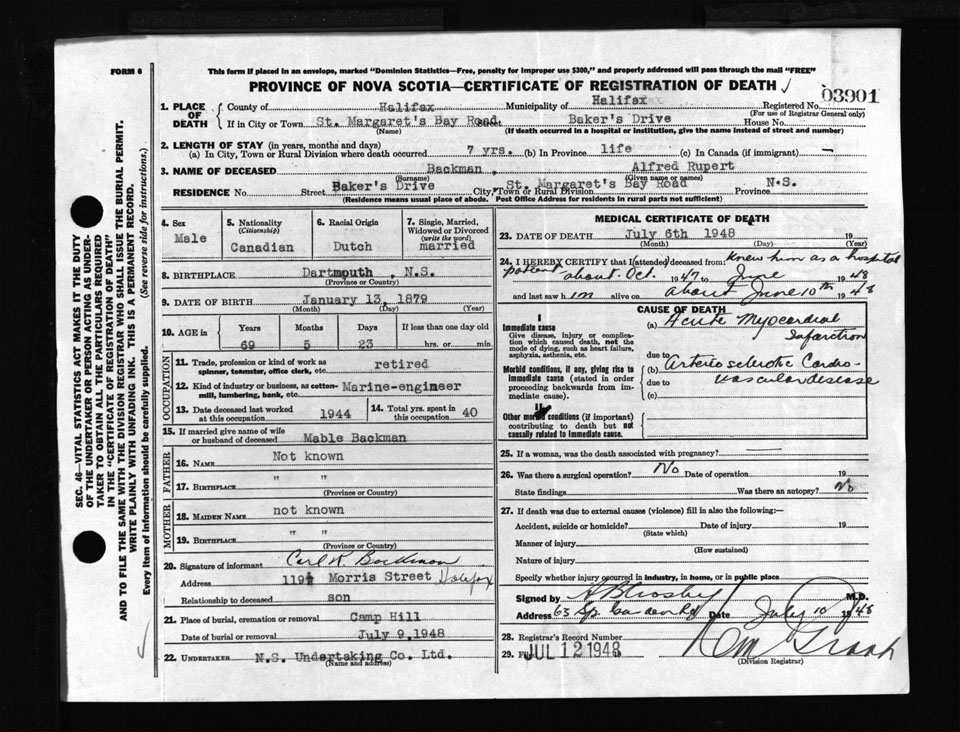 FORM 6
This form if placed in an envelope, marked "Dominion Statistics—Free, penalty for improper use $300," and properly addressed will pass through the mail "FREE"
PROVINCE OF NOVA SCOTIA—CERTIFICATE OF REGISTRATION OF DEATH
03901
1. PLACE OF DEATH
County of Halifax Municipality of Halifax Registered No.
(For use of Registrar General only)
If in City or Town St. Margaret's Bay Road Street Baker's Drive House No.
(Name) (If death occurred in a hospital or institution, give the name instead of street and number)
2. LENGTH OF STAY (in years, months and days)
(a) In City, Town or Rural Division where death occurred 7 yrs. (b) In Province life (c) In Canada (if immigrant) —
3. NAME OF DECEASED Backman, Alfred Rupert
(Surname) (Given name or names)
RESIDENCE No. Street Baker's Drive City, Town or Rural Division St. Margaret's Bay Road Province N.S.
(Residence means usual place of abode. Post Office Address for residents in rural parts not sufficient)
4. Sex
Male
5. Nationality
(Citizenship)
Canadian
6. Racial Origin
Dutch
7. Single, Married, Widowed or Divorced
(write the word)
married
8. BIRTHPLACE Dartmouth, N.S.
(Province or Country)
9. DATE OF BIRTH January 13, 1879
(Month) (Day) (Year)
10. AGE in
Years Months Days If less than one day old
69 5 23 hrs. or min.
OCCUPATION
11. Trade, profession or kind of work as spinner, teamster, office clerk, etc. retired
12. Kind of industry or business, as cotton-mill, lumbering, bank, etc. Marine-engineer
13. Date deceased last worked at this occupation 1944
14. Total yrs. spent in this occupation 40
15. If married give name of wife or husband of deceased Mable Backman
FATHER
16. NAME Not known
17. BIRTHPLACE " "
(Province or Country)
MOTHER
18. MAIDEN NAME not known
19. BIRTHPLACE " "
(Province or Country)
20. Signature of informant Carl R. Backman
Address Morris Street Halifax
Relationship to deceased son
21. Place of burial, cremation or removal Camp Hill
Date of burial or removal July 9, 1948
22. UNDERTAKER N.S. Undertaking Co. Ltd.
(Name and address)
MEDICAL CERTIFICATE OF DEATH
23. DATE OF DEATH July 6th 1948 19
(Month) (Day) (Year)
24. I HEREBY CERTIFY that I attended deceased from: knew him as a hospital
patient about Oct. 1947 to June 1948
and last saw him alive on about June 10th 1948
CAUSE OF DEATH
I
Immediate cause
Give disease, injury or complication which caused death, not the mode of dying, such as heart failure, asphyxia, asthenia, etc.
(a) Acute Myocardial Infarction
due to
Morbid conditions, if any, giving rise to immediate cause (stated in order proceeding backwards from immediate cause).
(b) Arteriosclerotic Cardio-vascular disease
due to
(c)
II
Other morbid conditions (if important) contributing to death but not causally related to immediate cause.
25. If a woman, was the death associated with pregnancy? —
26. Was there a surgical operation? No Date of operation 19
State findings Was there an autopsy? No
27. If death was due to external causes (violence) fill in also the following:—
Accident, suicide or homicide? Date of injury 19
(State which)
Manner of injury
(How sustained)
Nature of injury
Specify whether injury occurred in industry, in home, or in public place
Signed by A B Crosby M.D.
Address 63 Sp. Garden Rd Date July 10 1948
28. Registrar's Record Number
29. Filed JUL 12 1948 19
(Division Registrar)
SEC. 46—VITAL STATISTICS ACT MAKES IT THE DUTY
OF THE UNDERTAKER OR PERSON ACTING AS UNDER-
TAKER TO OBTAIN ALL THE PARTICULARS REQUIRED
IN THE "CERTIFICATE OF REGISTRATION OF DEATH"
AND TO FILE THE SAME WITH THE DIVISION REGISTRAR WHO SHALL ISSUE THE BURIAL PERMIT.
WRITE PLAINLY WITH UNFADING INK. THIS IS A PERMANENT RECORD.
Every item of information should be carefully supplied. (See reverse side for instructions.)